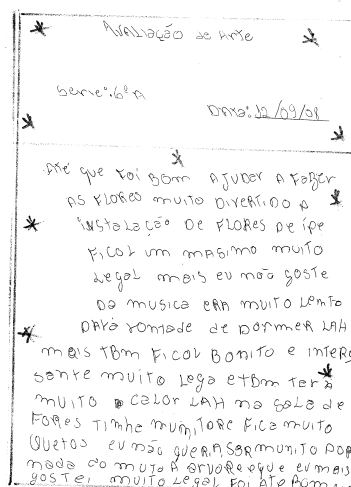 AVALIAÇÃO de Arte
Serie: 6ª A
DATA: 12/09/08
Até que Foi BOM AJUDER A FAZER
AS FLORES MUITO DIVERTIDO A
INSTALAÇÃO DE FLORES De ipe
FICOL UM MASIMO MUITO
Legal mais eu não goste
DA MUSICA ERA MUITO LENTO
DAVA VONTADE de DORMER LAH
mais TBM FICOL BONITO e INTERE
SANTE MUITO Lega e TBM TER
MUITO CALOR LAH na SALA de
FORES TINHA MUNITORE FICA MUITO
QUETOS eu não QUERA SER MUNITO POR
nada do MUTO A ARVORE que eu mais
gostei MUITO Legal Foi ATE